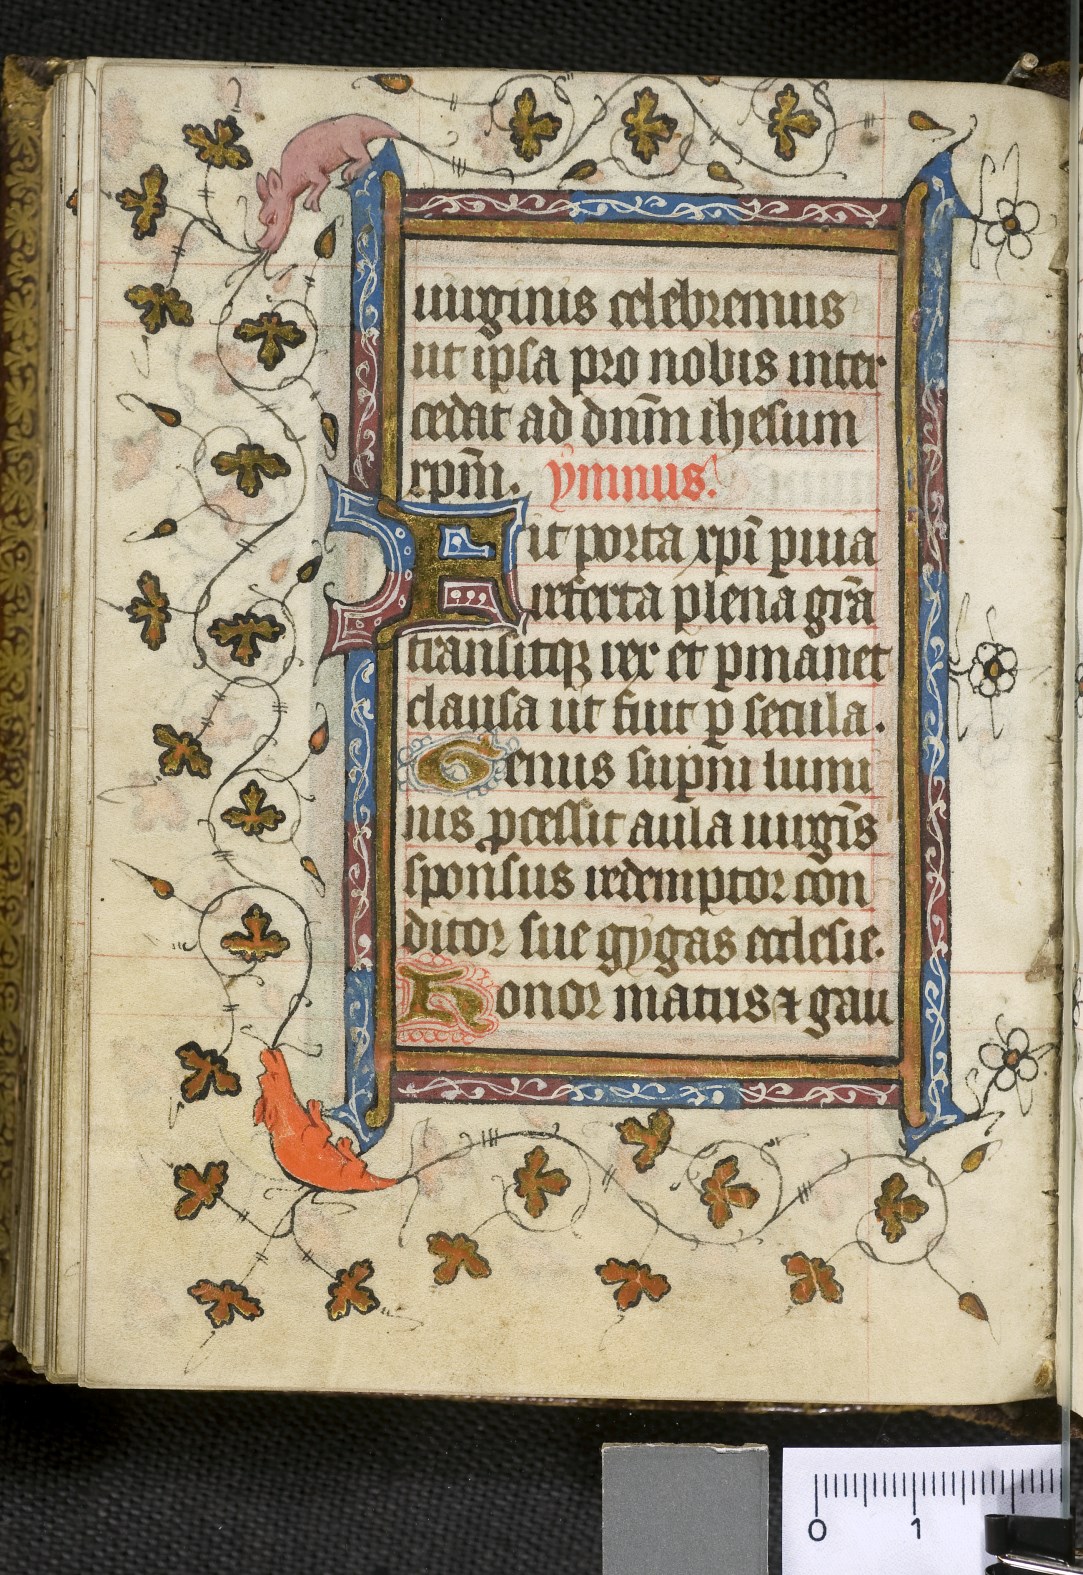 uirginis celebremus
ut ipsa pro nobis inter
cedat ad dn̄m ihesum
xpm̄. ymnus.
Fit porta xpi̅ peruia
referta plena gr̄a
transitq; rex et ꝑmanet
clausa ut fuit ꝑ secula.
Genus suꝑni lumi
nis ꝓcessit aula uirgīs
sponsus redemptor con
ditor sue gygas ecclesie.
Honor matris ⁊ gau
0 1